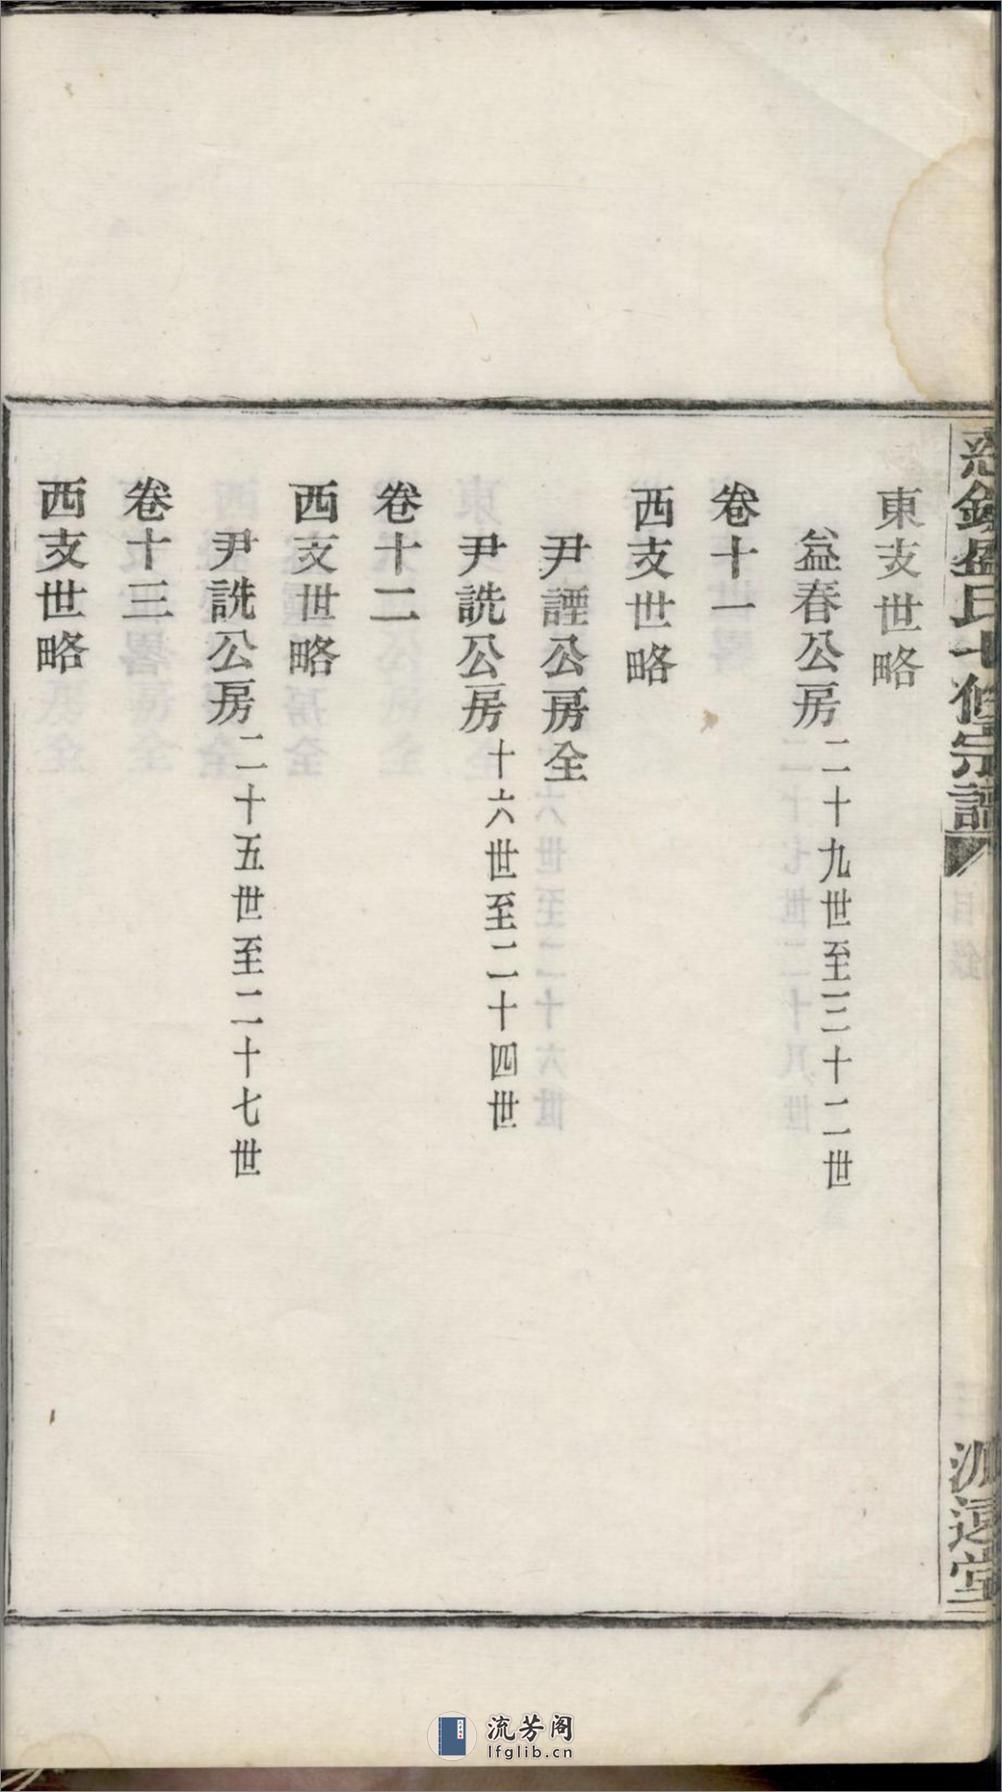 盛氏七修宗譜
派遠堂
東支世略
益春公房二十九世至三十二世
卷十一
西支世略
尹諲公房全
尹詵公房十六世至二十四世
卷十二
西支世略
尹詵公房二十五世至二十七世
卷十三
西支世略
流芳阁
lfglib.cn